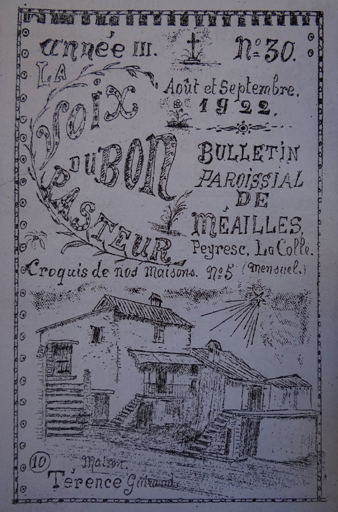 année III. N° 30.
LA VOIX DU BON PASTEUR
Août et Septembre.
1922.
BULLETIN
PAROISSIAL
DE
MÉAILLES,
Peyresc, La Colle.
Croquis de nos maisons. N° 5 (mensuel.)
10
Maison
Térence